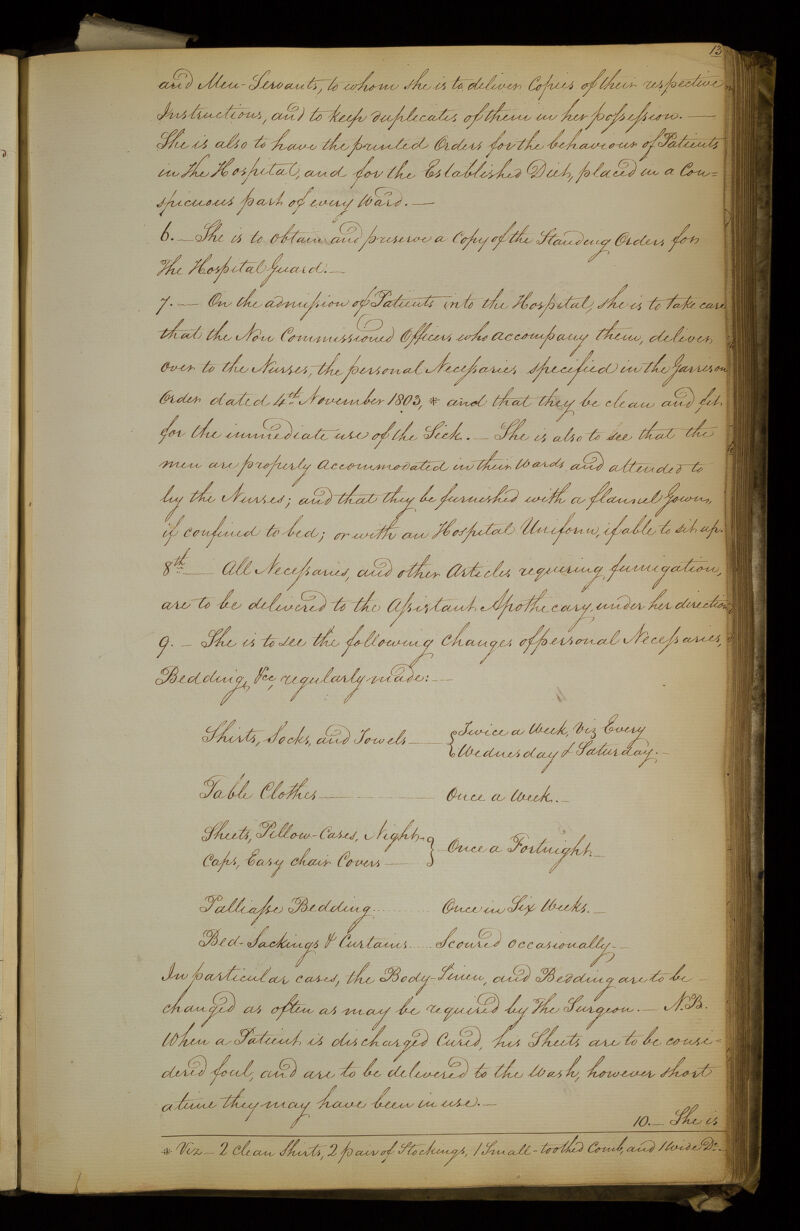 13
and Men-Servants, to whom she is to deliver Copies of their respective
Instructions, and to keep duplicates of them in her possession. —
She is also to have the printed Orders for the behaviour of Patients
in The Hospital, and for the Established Diet, placed in a Con=
spicuous part of every Ward. —
6. — She is to obtain and preserve a Copy of the Standing Orders for
The Hospital Guard. —
7. — On the admission of Patients into the Hospital, she is to take care
that the Non Commissioned Officers who accompany them, deliver
over to the Nurses, the personal Necessaries specified in the Garrison
Order dated 4th November 1803, * and that they be clean and fit
for the immediate use of the Sick. — She is also to see that the
men are properly accommodated in their Wards and attended to
by the Nurses; and that they be furnished with a flannel Gown,
if confined to bed; or with an Hospital Uniform, if able to sit up.
8th — All Necessaries, and other Articles requiring fumigation,
are to be delivered to the Assistant Apothecary, under her direction
9. — She is to see the following Changes of personal Necessaries,
Bedding, &c, regularly made: —
Shirts, Socks, and Towels — { Twice a Week, Viz Every
Wednesday & Saturday. —
Table Clothes — Once a Week. —
Sheets, Pillow-Cases, Night-
Caps, Easy chair Covers — } Once a Fortnight —
Palliasse Bedding ........ Once in Six Weeks. —
Bed-Sackings & Curtains ..... Scoured occasionally. —
In particular cases, the Body-Linen, and Bedding are to be
changed as often as may be required by The Surgeon. — N.B.
When a Patient is discharged Cured, his Sheets are to be consi=
dered foul, and are to be delivered to the Wash, however short
a time they may have been in use. —
10. — She is
* Viz — 2 Clean Shirts, 2 pair of Stockings, 1 Small-toothed Comb, and 1 wide Do —